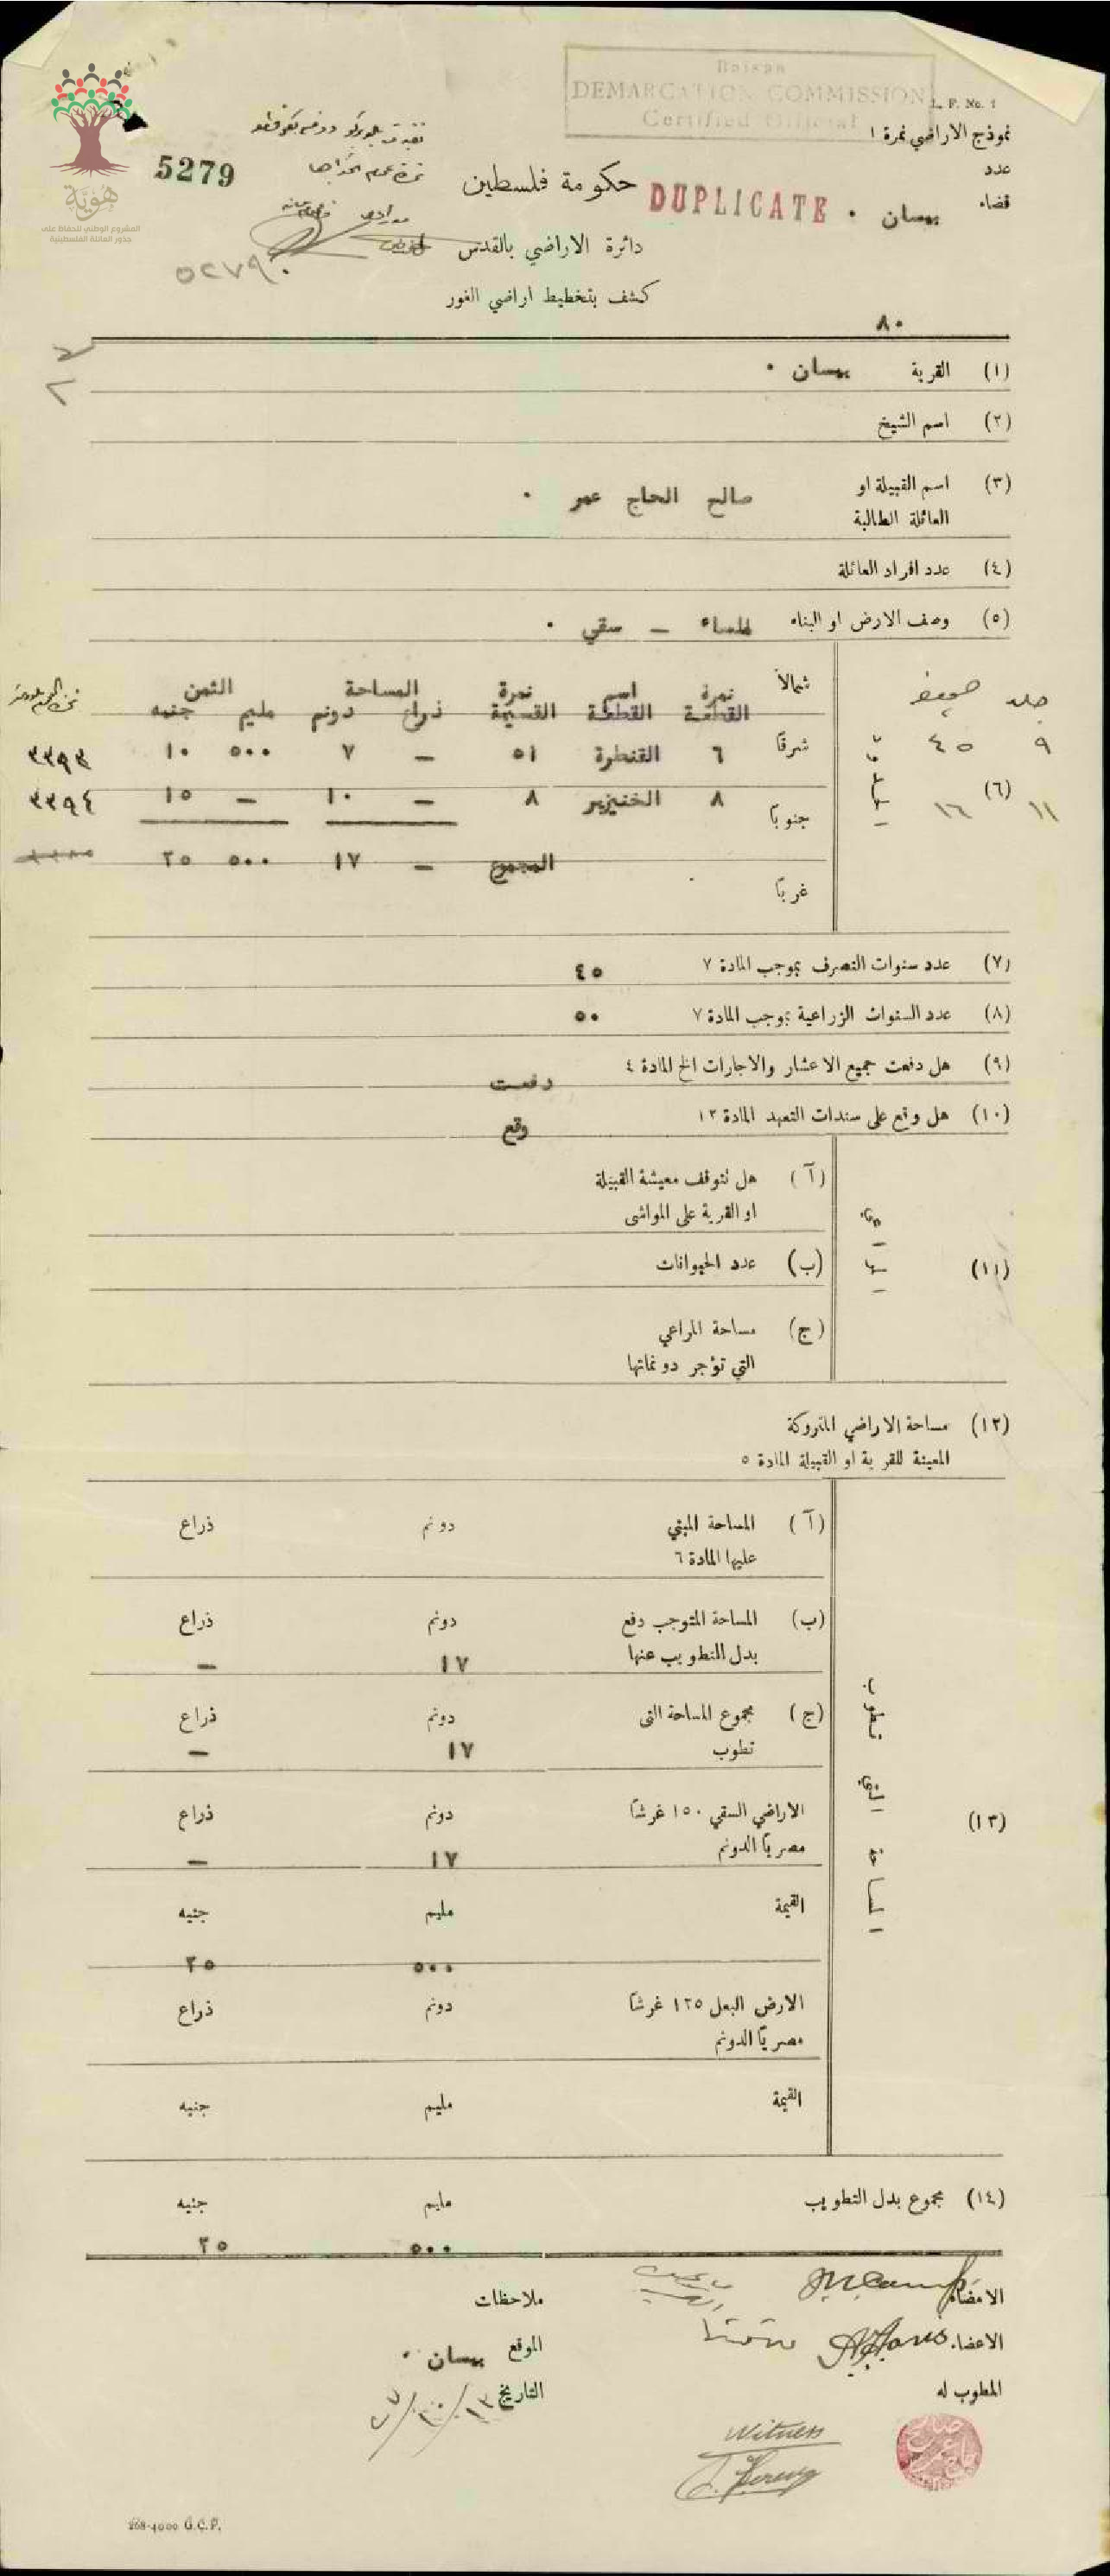 Beisan
DEMARCATION COMMISSION
Certified Official
L. F. No. 1
نموذج الاراضي نمرة ١
عدد
قضاء بيسان .
DUPLICATE
حكومة فلسطين
5279
٥٢٧٩
هُويّة
المشروع الوطني للحفاظ على
جذور العائلة الفلسطينية
دائرة الاراضي بالقدس
كشف بتخطيط اراضي الغور
٨٠
(١) القرية بيسان .
(٢) اسم الشيخ
(٣) اسم القبيلة او
العائلة الطالبة صالح الحاج عمر .
(٤) عدد افراد العائلة
(٥) وصف الارض او البناء ملساء – سقي .
(٦)
جلد صحيفة
٩ ٤٥
١١ ١٦
شمالاً
شرقاً
جنوباً
غرباً
نمرة القطعة اسم القطعة نمرة القسيمة المساحة الثمن
ذراع دونم مليم جنيه
٦ القنطرة ٥١ – ٧ ٥٠٠ ١٠ ٣٣٩٣
٨ الخنيزير ٨ – ١٠ – ١٥ ٣٣٩٤
المجموع – ١٧ ٥٠٠ ٢٥
(٧) عدد سنوات التصرف بموجب المادة ٧ ٤٥
(٨) عدد السنوات الزراعية بموجب المادة ٧ ٥٠
(٩) هل دفعت جميع الاعشار والاجارات الخ المادة ٤ دفعت
(١٠) هل وقع على سندات التعهد المادة ١٣ وقع
(١١)
(آ) هل تتوقف معيشة القبيلة
او القرية على المواشى
(ب) عدد الحيوانات
(ج) مساحة المراعي
التي تؤجر دونماتها
(١٢) مساحة الاراضي المتروكة
المعينة للقرية او القبيلة المادة ٥
(١٣) المساحة التي تطوب
(آ) المساحة المبني دونم ذراع
عليها المادة ٦
(ب) المساحة المتوجب دفع دونم ذراع
بدل التطويب عنها ١٧ –
(ج) مجموع المساحة التى دونم ذراع
تطوب ١٧ –
الاراضي السقي ١٥٠ غرشاً دونم ذراع
مصرياً الدونم ١٧ –
القيمة مليم جنيه
٥٠٠ ٢٥
الارض البعل ١٢٥ غرشاً دونم ذراع
مصرياً الدونم
القيمة مليم جنيه
(١٤) مجموع بدل التطويب مليم جنيه
٥٠٠ ٢٥
الامضاء
ملاحظات
الاعضاء
الموقع بيسان .
المطوب له
التاريخ
Witness
268-4000 G.C.P.